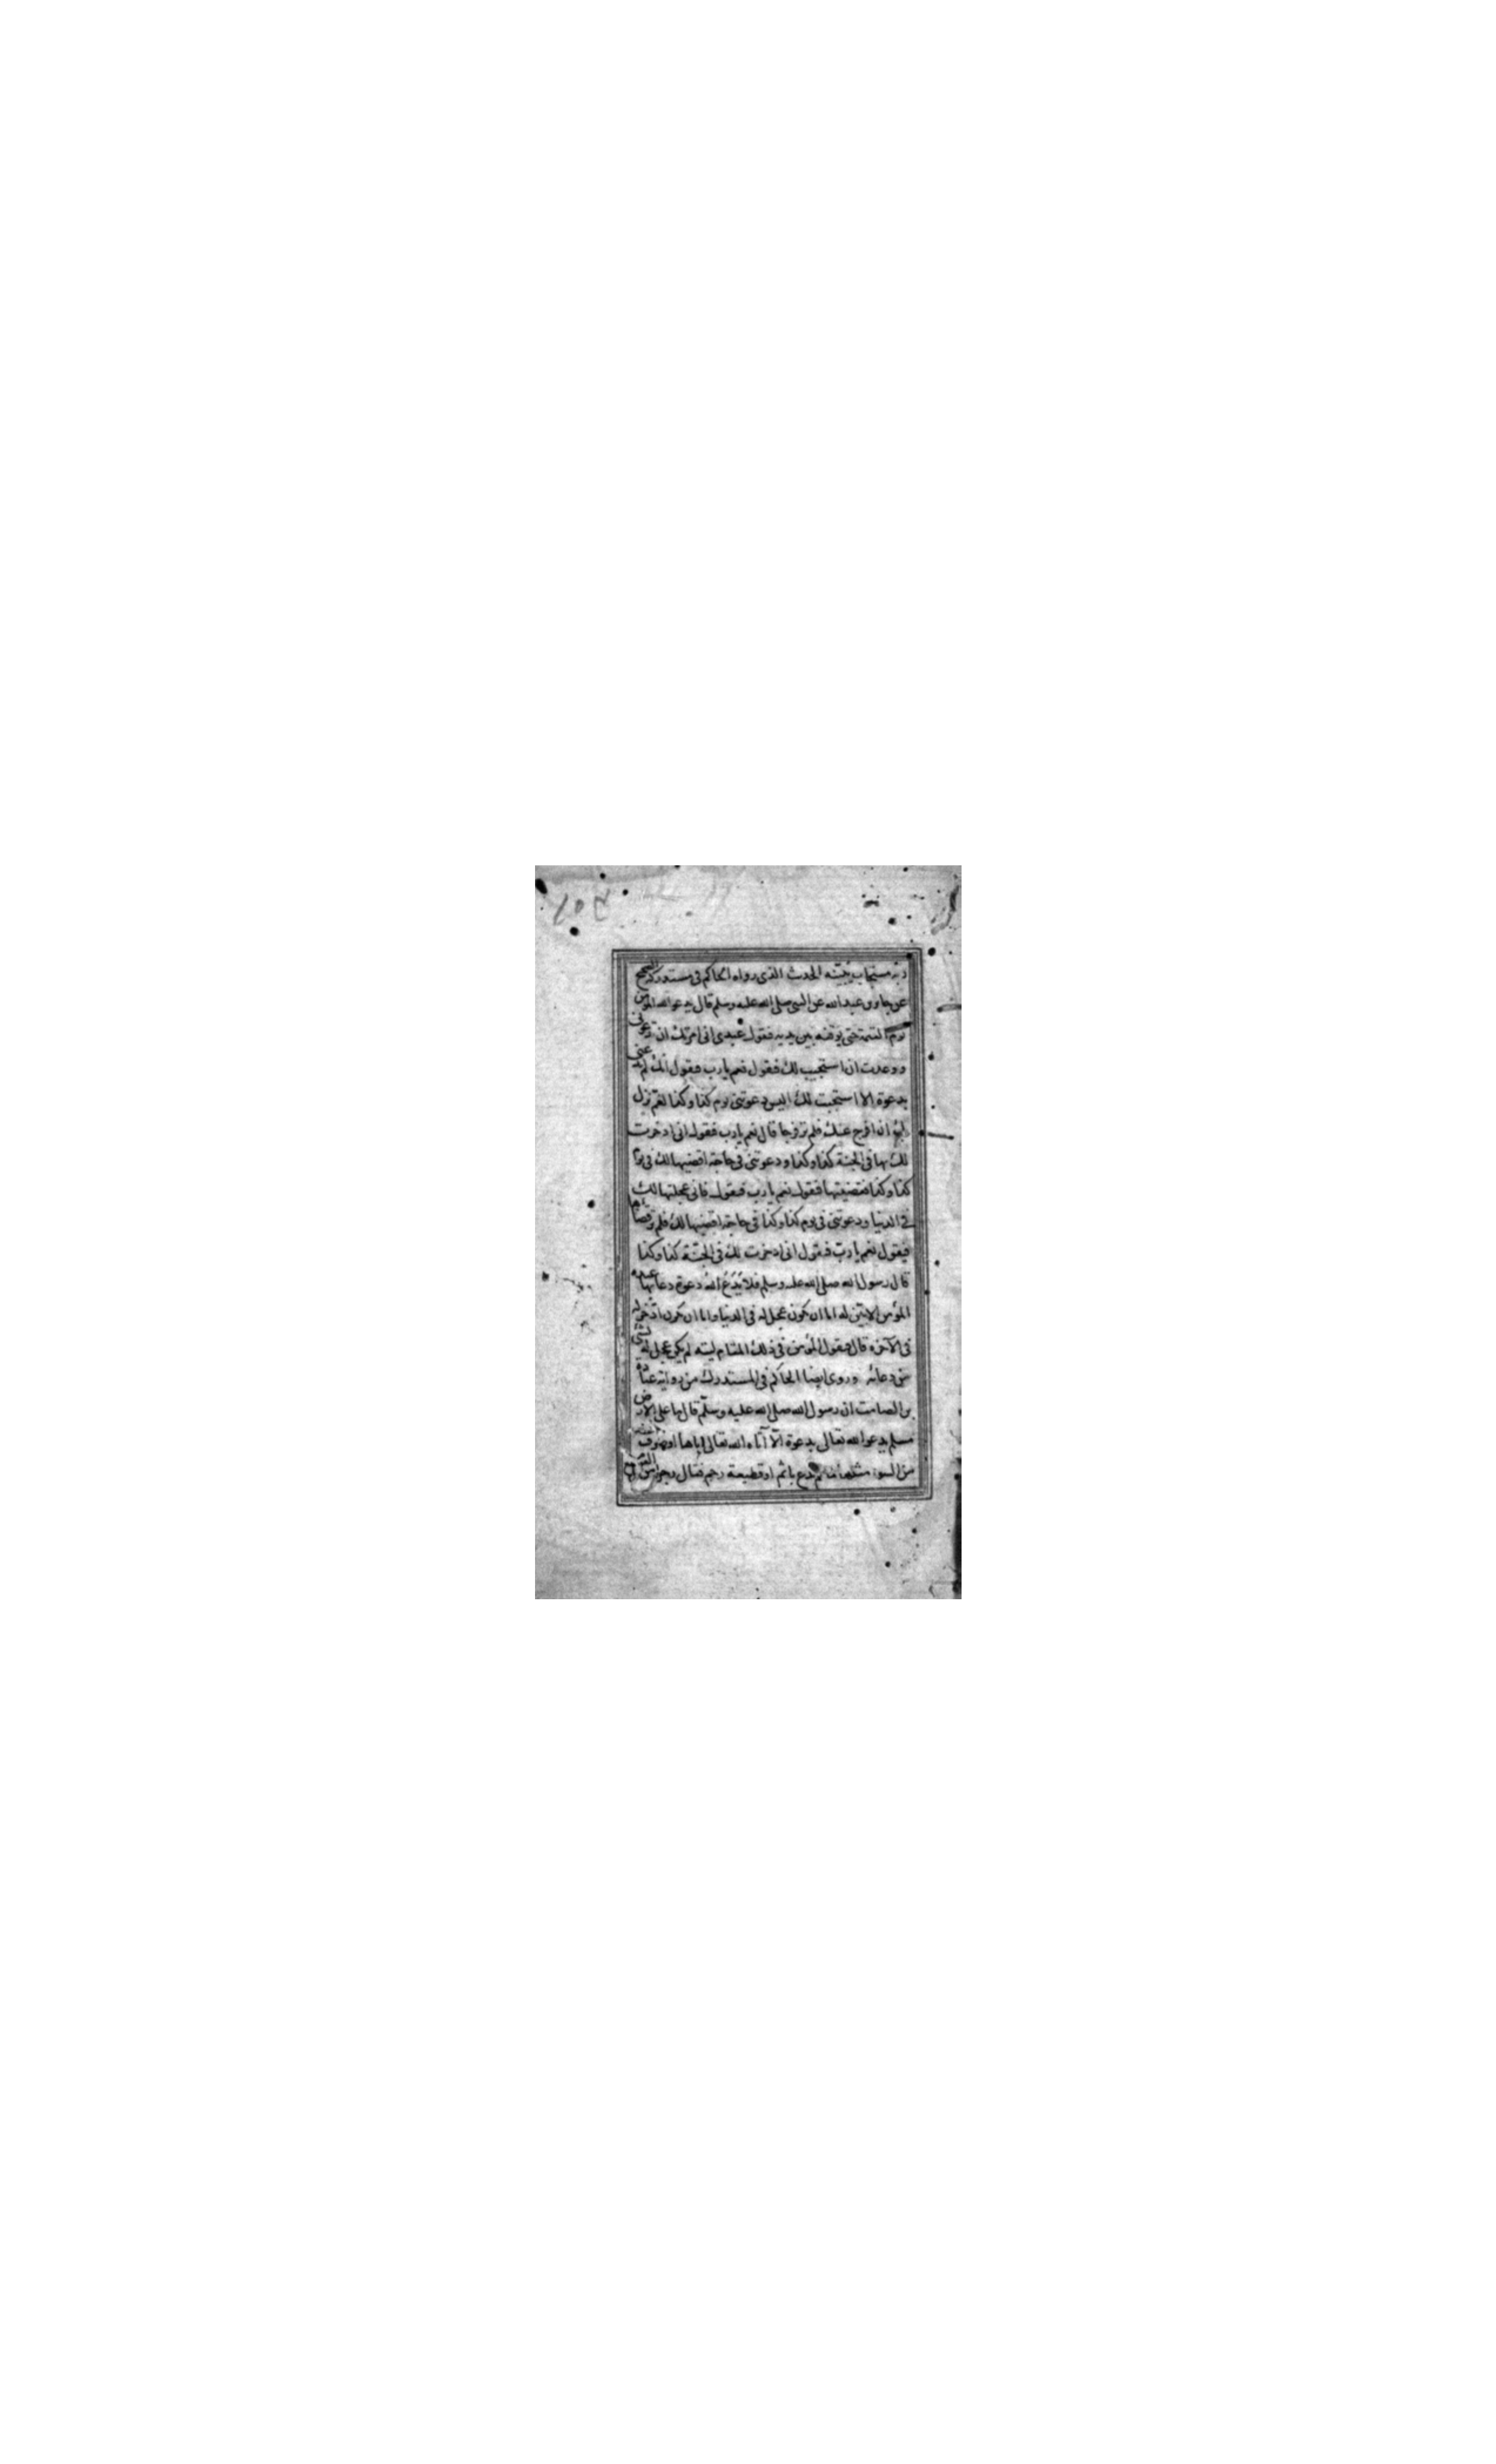 ربه مستجاب يبينه الحدث الذى رواه الحاكم فى مستدركه الصحيح
عن جابر بن عبدالله عن النبى صلى الله عليه وسلم قال يدعو الله المؤمن
يوم القيمة حتى يوقفه بين يديه فيقول عبدى انى امرتك ان تدعونى
ووعدت ان استجيب لك فيقول نعم يارب فيقول انك لم تدعنى
بدعوة الا استجبت لك اليس دعوتنى يوم كذا وكذا لغم نزل
بك ان افرج عنك فلم تر فرجا قال نعم يارب فيقول انى ادخرت
لك بها فى الجنة كذا وكذا ودعوتنى فى حاجة اقضيها لك فى يوم
كذا وكذا فقضيتها فيقول نعم يارب فيقول فانى عجلتها لك
فى الدنيا ودعوتنى فى يوم كذا وكذا فى حاجة اقضيها لك فلم تر قضاها
فيقول نعم يا رب فيقول انى ادخرت لك فى الجنة كذا وكذا
قال رسول الله صلى الله عليه وسلم فلا يَدَعُ الله دعوة دعا بها عبده
المؤمن الا بين له اما ان يكون عجل له فى الدنيا واما ان يكون ادخر له
فى الآخرة قال فيقول المؤمن فى ذلك المقام ليته لم يكن عجل له شئ
من دعائه وروى ايضا الحاكم فى المستدرك من رواية عبادة
بن الصامت ان رسول الله صلى الله عليه وسلم قال ما على الارض
مسلم يدعو الله تعالى بدعوة الا آتاه الله تعالى اياها او صرف عنه
من السوء مثلها ما لم يدع باثم او قطيعة رحم فقال رجل من القوم